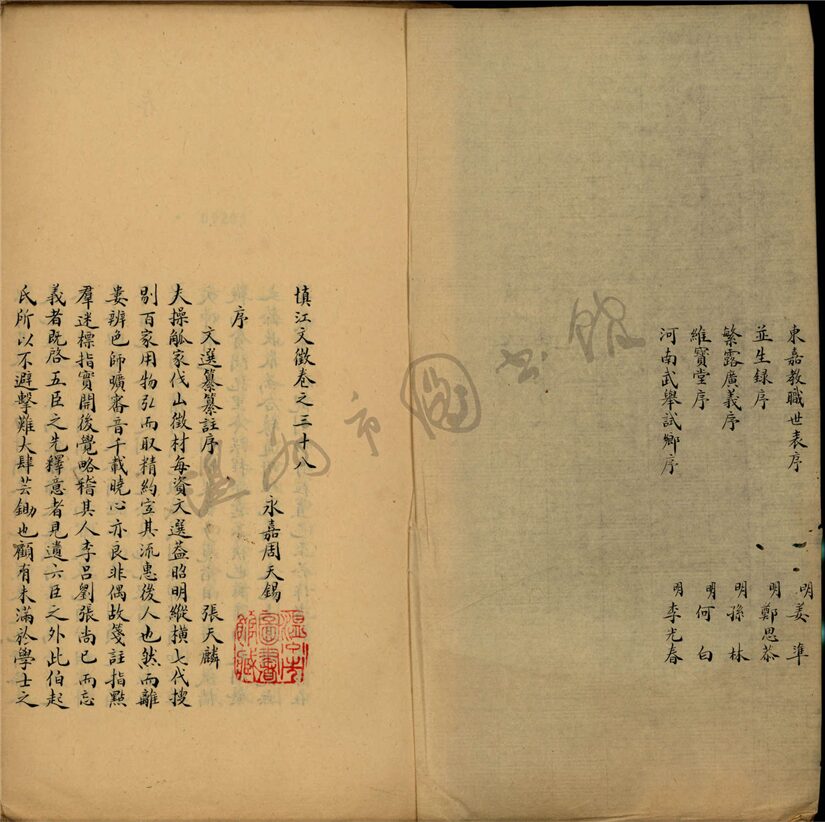 東嘉教職世表序 明姜準
並生録序 明鄭思恭
繁露廣義序 明孫林
維寳堂序 明何白
河南武舉試鄉序 明李光春
慎江文徵卷之三十八
永嘉周天錫
序
文選纂註序 張天麟
夫操觚家伐山徵材每資文選葢昭明縱横七代搜
剔百家用物弘而取精約室其流惠後人也然而離
婁辨色師曠審音千載曉心亦良非偶故箋註指點
羣迷標指實開後覺略稽其人李呂劉張尚已而忘
義者既啓五臣之先釋意者見遺六臣之外此伯起
氏所以不避擊難大肆芸鋤也顧有未滿於學士之
温州市圖書館藏
温州市圖書館